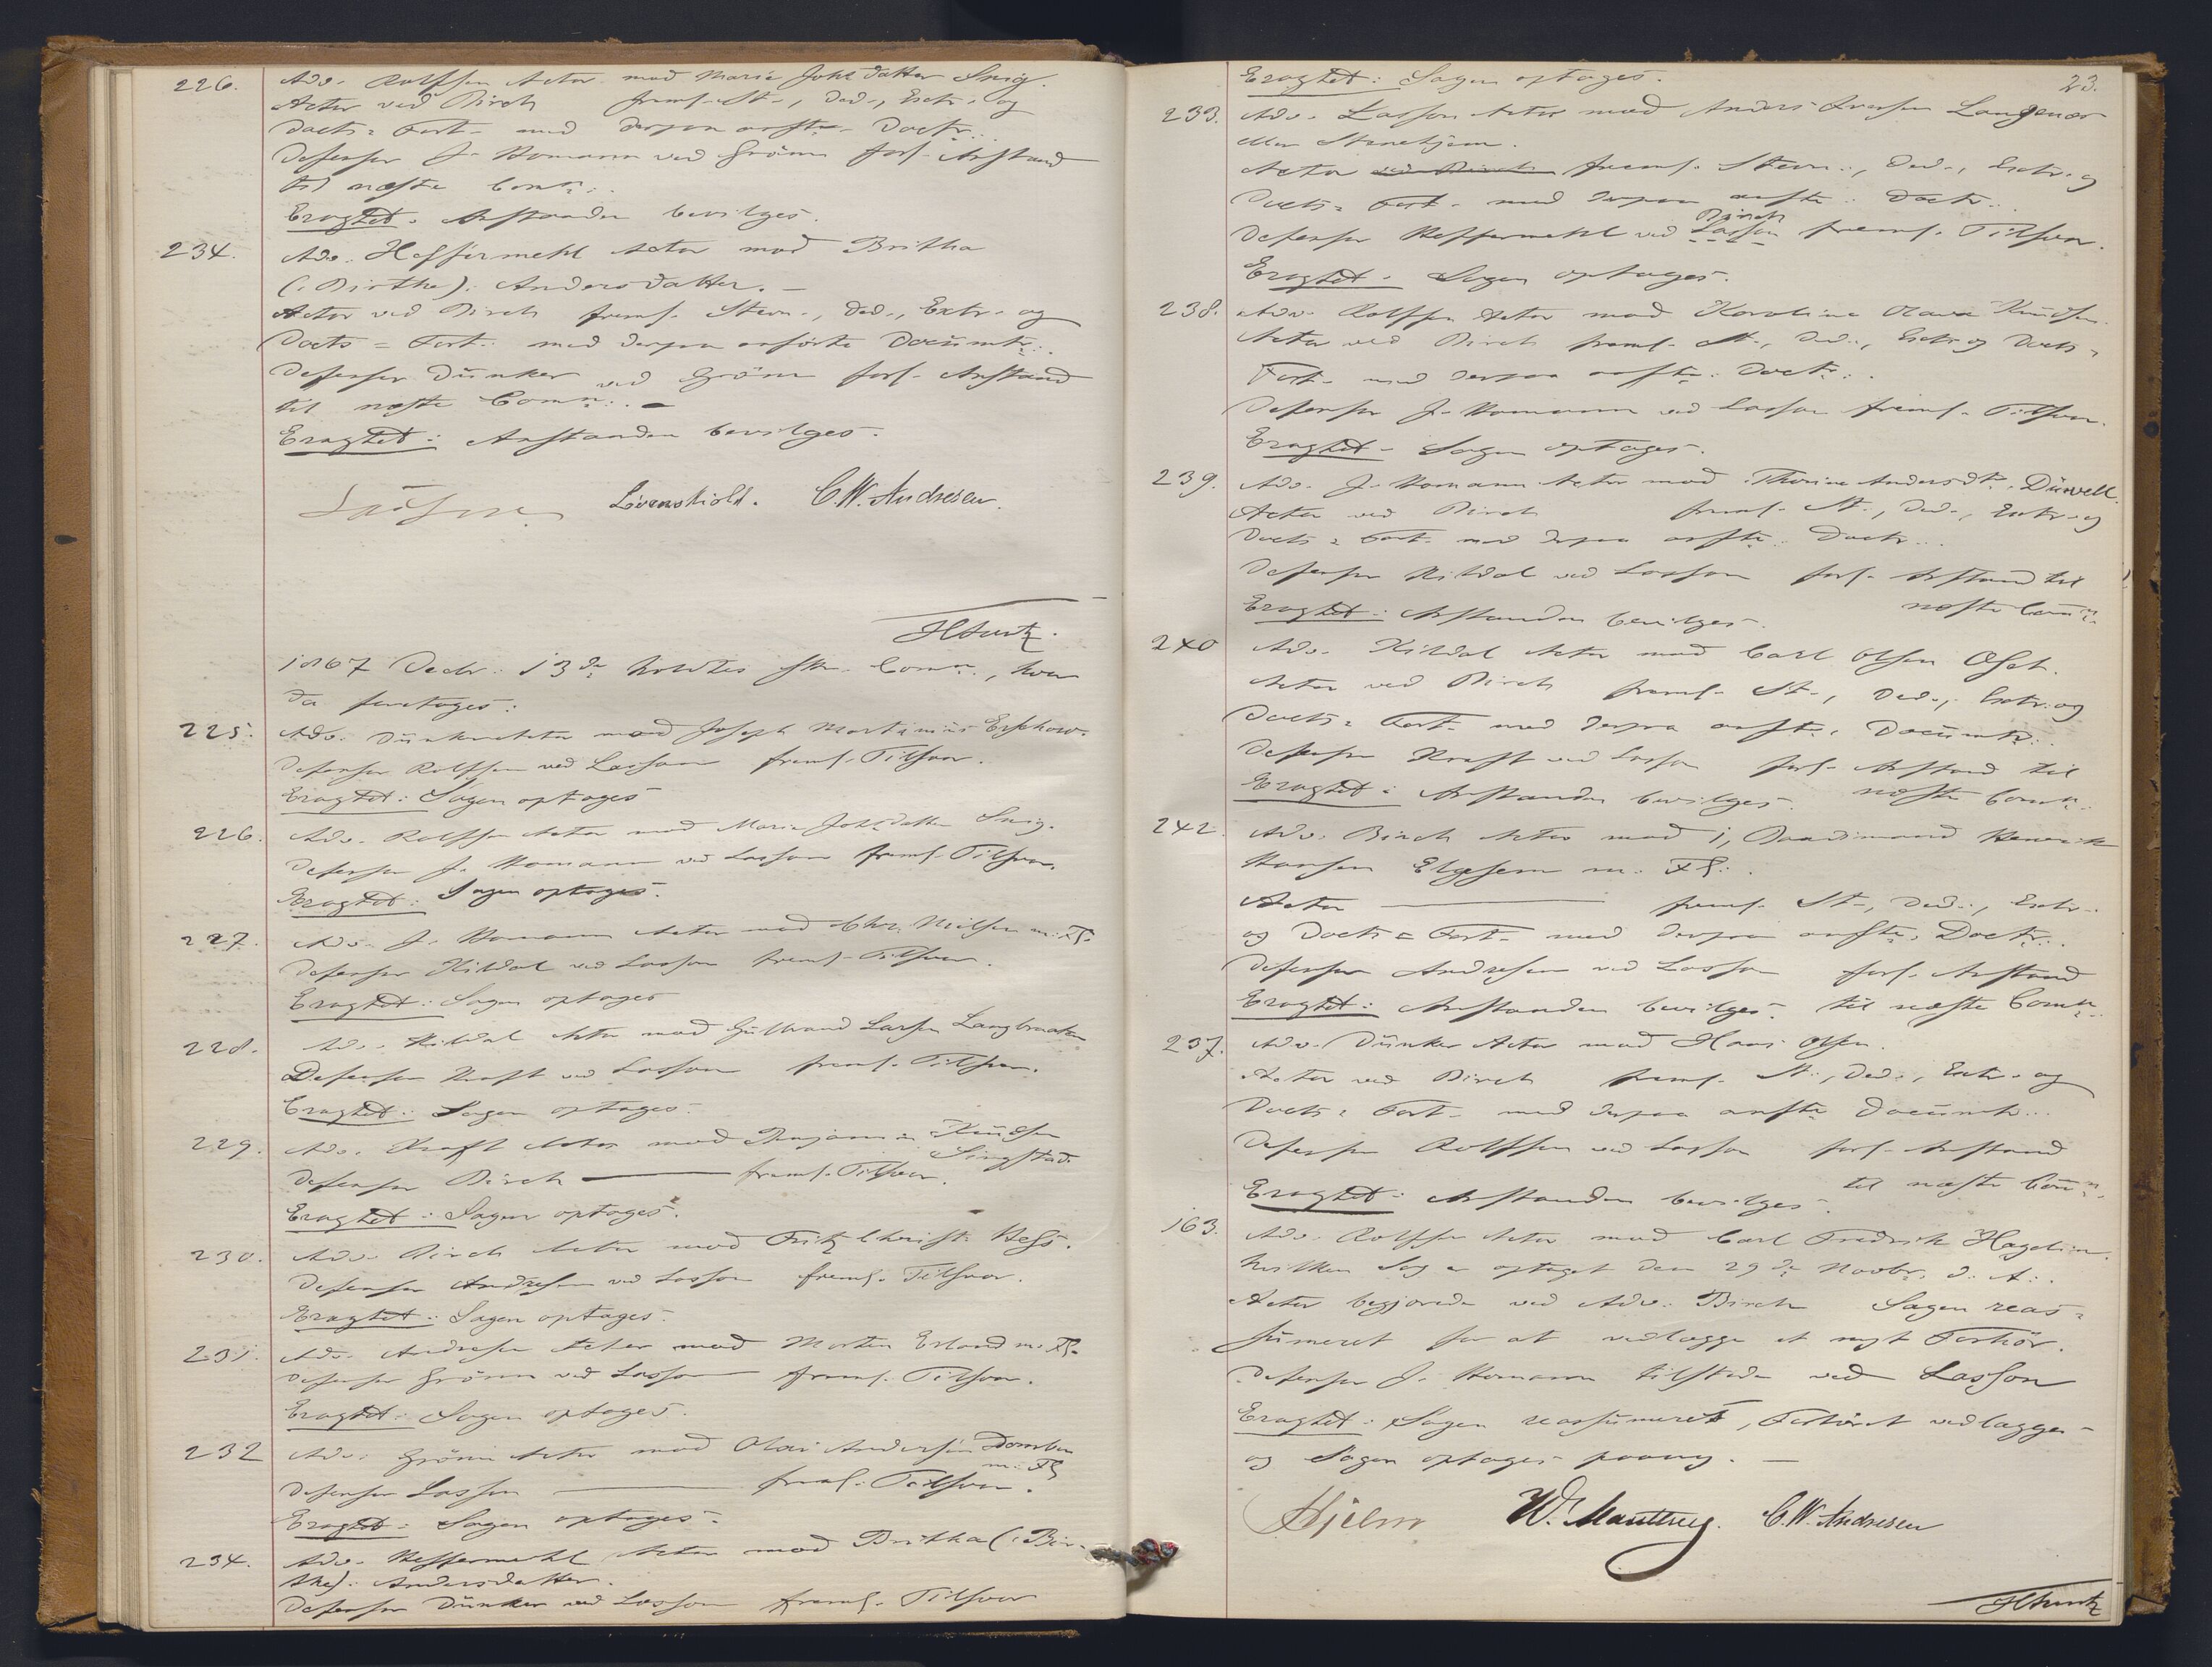 226. Adv. Rolffsen Actor mod Maria Johsdatter Snig.
Actor ved Birch freml. St., Ded., Extr. og
Docts = Fort. med derpaa anfte. Doctr.
Defensor J. Homann ved Grönn forl. Anstand
til næste Comn.
Eragtet: Anstanden bevilges.
234. Adv. Heffermehl Actor mod Britha
(: Birthe) : Andersdatter. —
Actor ved Birch freml. Stevn., Ded., Extr. og
Docts = Fort. med derpaa anförte Documtr.
Defensor Dunker ved Grönn forl. Anstand
til næste Comn. —
Eragtet: Anstanden bevilges.
Lövenskiold. C.W. Andresen.
1867 Decbr. 13de holdtes Comn., hvor
da foretoges:
225. Adv. Dunker Actor mod Joseph Martinius
Defensor Rolffsen ved Lasson freml. Tilsvar.
Eragtet: Sagen optages
226. Adv. Rolffsen Actor mod Maria Johsdatter Snig.
Defensor J. Homann ved Lasson freml. Tilsvar.
Eragtet: Sagen optages.
227. Adv. J. Homann Actor mod Chr. Nielsen m. Fl.
Defensor Kildal ved Lasson freml. Tilsvar.
Eragtet: Sagen optages
228. Adv. Kildal Actor mod Gulbrand Larsen Langbraaten
Defensor Kraft ved Lasson freml. Tilsvar.
Eragtet: Sagen optages.
229. Adv. Kraft Actor mod Benjamin Knudsen
Singstad.
Defensor Birch — freml. Tilsvar.
Eragtet: Sagen optages.
230. Adv. Birch Actor mod Fritz Christ. Hess.
Defensor Andresen ved Lasson freml. Tilsvar.
Eragtet: Sagen optages.
231. Adv. Andresen Actor mod Morten Erland m. Fl.
Defensor Grönn ved Lasson freml. Tilsvar.
Eragtet: Sagen optages.
232 Adv. Grönn Actor mod Olai Andersen
m. Fl
Defensor Lasson — freml. Tilsvar.
Eragtet: Sagen optages.
234. Adv. Heffermehl Actor mod Britha (: Bir-
the) : Andersdatter.
Defensor Dunker ved Lasson freml. Tilsvar
23.
Eragtet: Sagen optages.
233. Adv. Lasson Actor mod Anders Iversen
eller
Actor ved Birch freml. Stevn., Ded., Extr. og
Docts = Fort. med derpaa anfte. Doctr.
Birch
Defensor Heffermehl ved Lasson freml. Tilsvar.
Eragtet: Sagen optages.
238. Adv. Rolffsen Actor mod Karoline Olava Knudsen.
Actor ved Birch freml. St., Ded., Extr. og Docts =
Fort. med derpaa anfte. Doctr.
Defensor J. Homann ved Lasson freml. Tilsvar.
Eragtet: Sagen optages.
239. Adv. J. Homann Actor mod Thorine Andersdtr.
Actor ved Birch freml. St., Ded., Extr. og
Docts = Fort. med derpaa anfte. Doctr.
Defensor Kildal ved Lasson forl. Anstand til
næste Comn.
Eragtet: Anstanden bevilges.
240 Adv. Kildal Actor mod Carl Olsen
Actor ved Birch freml. St., Ded., Extr. og
Docts = Fort. med derpaa anfte. Documtr.
Defensor Kraft ved Lasson forl. Anstand til
næste Comn.
Eragtet: Anstanden bevilges.
242. Adv. Birch Actor mod 1, Baadsmand Henrik
Hansen Elgesem m. Fl.
Actor — freml. St., Ded., Extr.
og Docts = Fort. med derpaa anfte. Doctr.
Defensor Andresen ved Lasson forl. Anstand
til næste Comn.
Eragtet: Anstanden bevilges.
237. Adv. Dunker Actor mod Hans Olsen.
Actor ved Birch freml. St., Ded., Extr. og
Docts = Fort. med derpaa anfte Documtr.
Defensor Rolffsen ved Lasson forl. Anstand
til næste Comn.
Eragtet: Anstanden bevilges.
163. Adv. Rolffsen Actor mod Carl Fredrik Hagelin.
hvilken Sag er optaget den 29de Novbr. d. A.
Actor begjærede ved Adv. Birch Sagen reas=
sumeret for at vedlægge et nyt Forhör.
Defensor J. Homann tilstede ved Lasson
Eragtet: Sagen reassumeret, Forhöret vedlægges
og Sagen optages paany. —
Hjelm C.W. Andresen